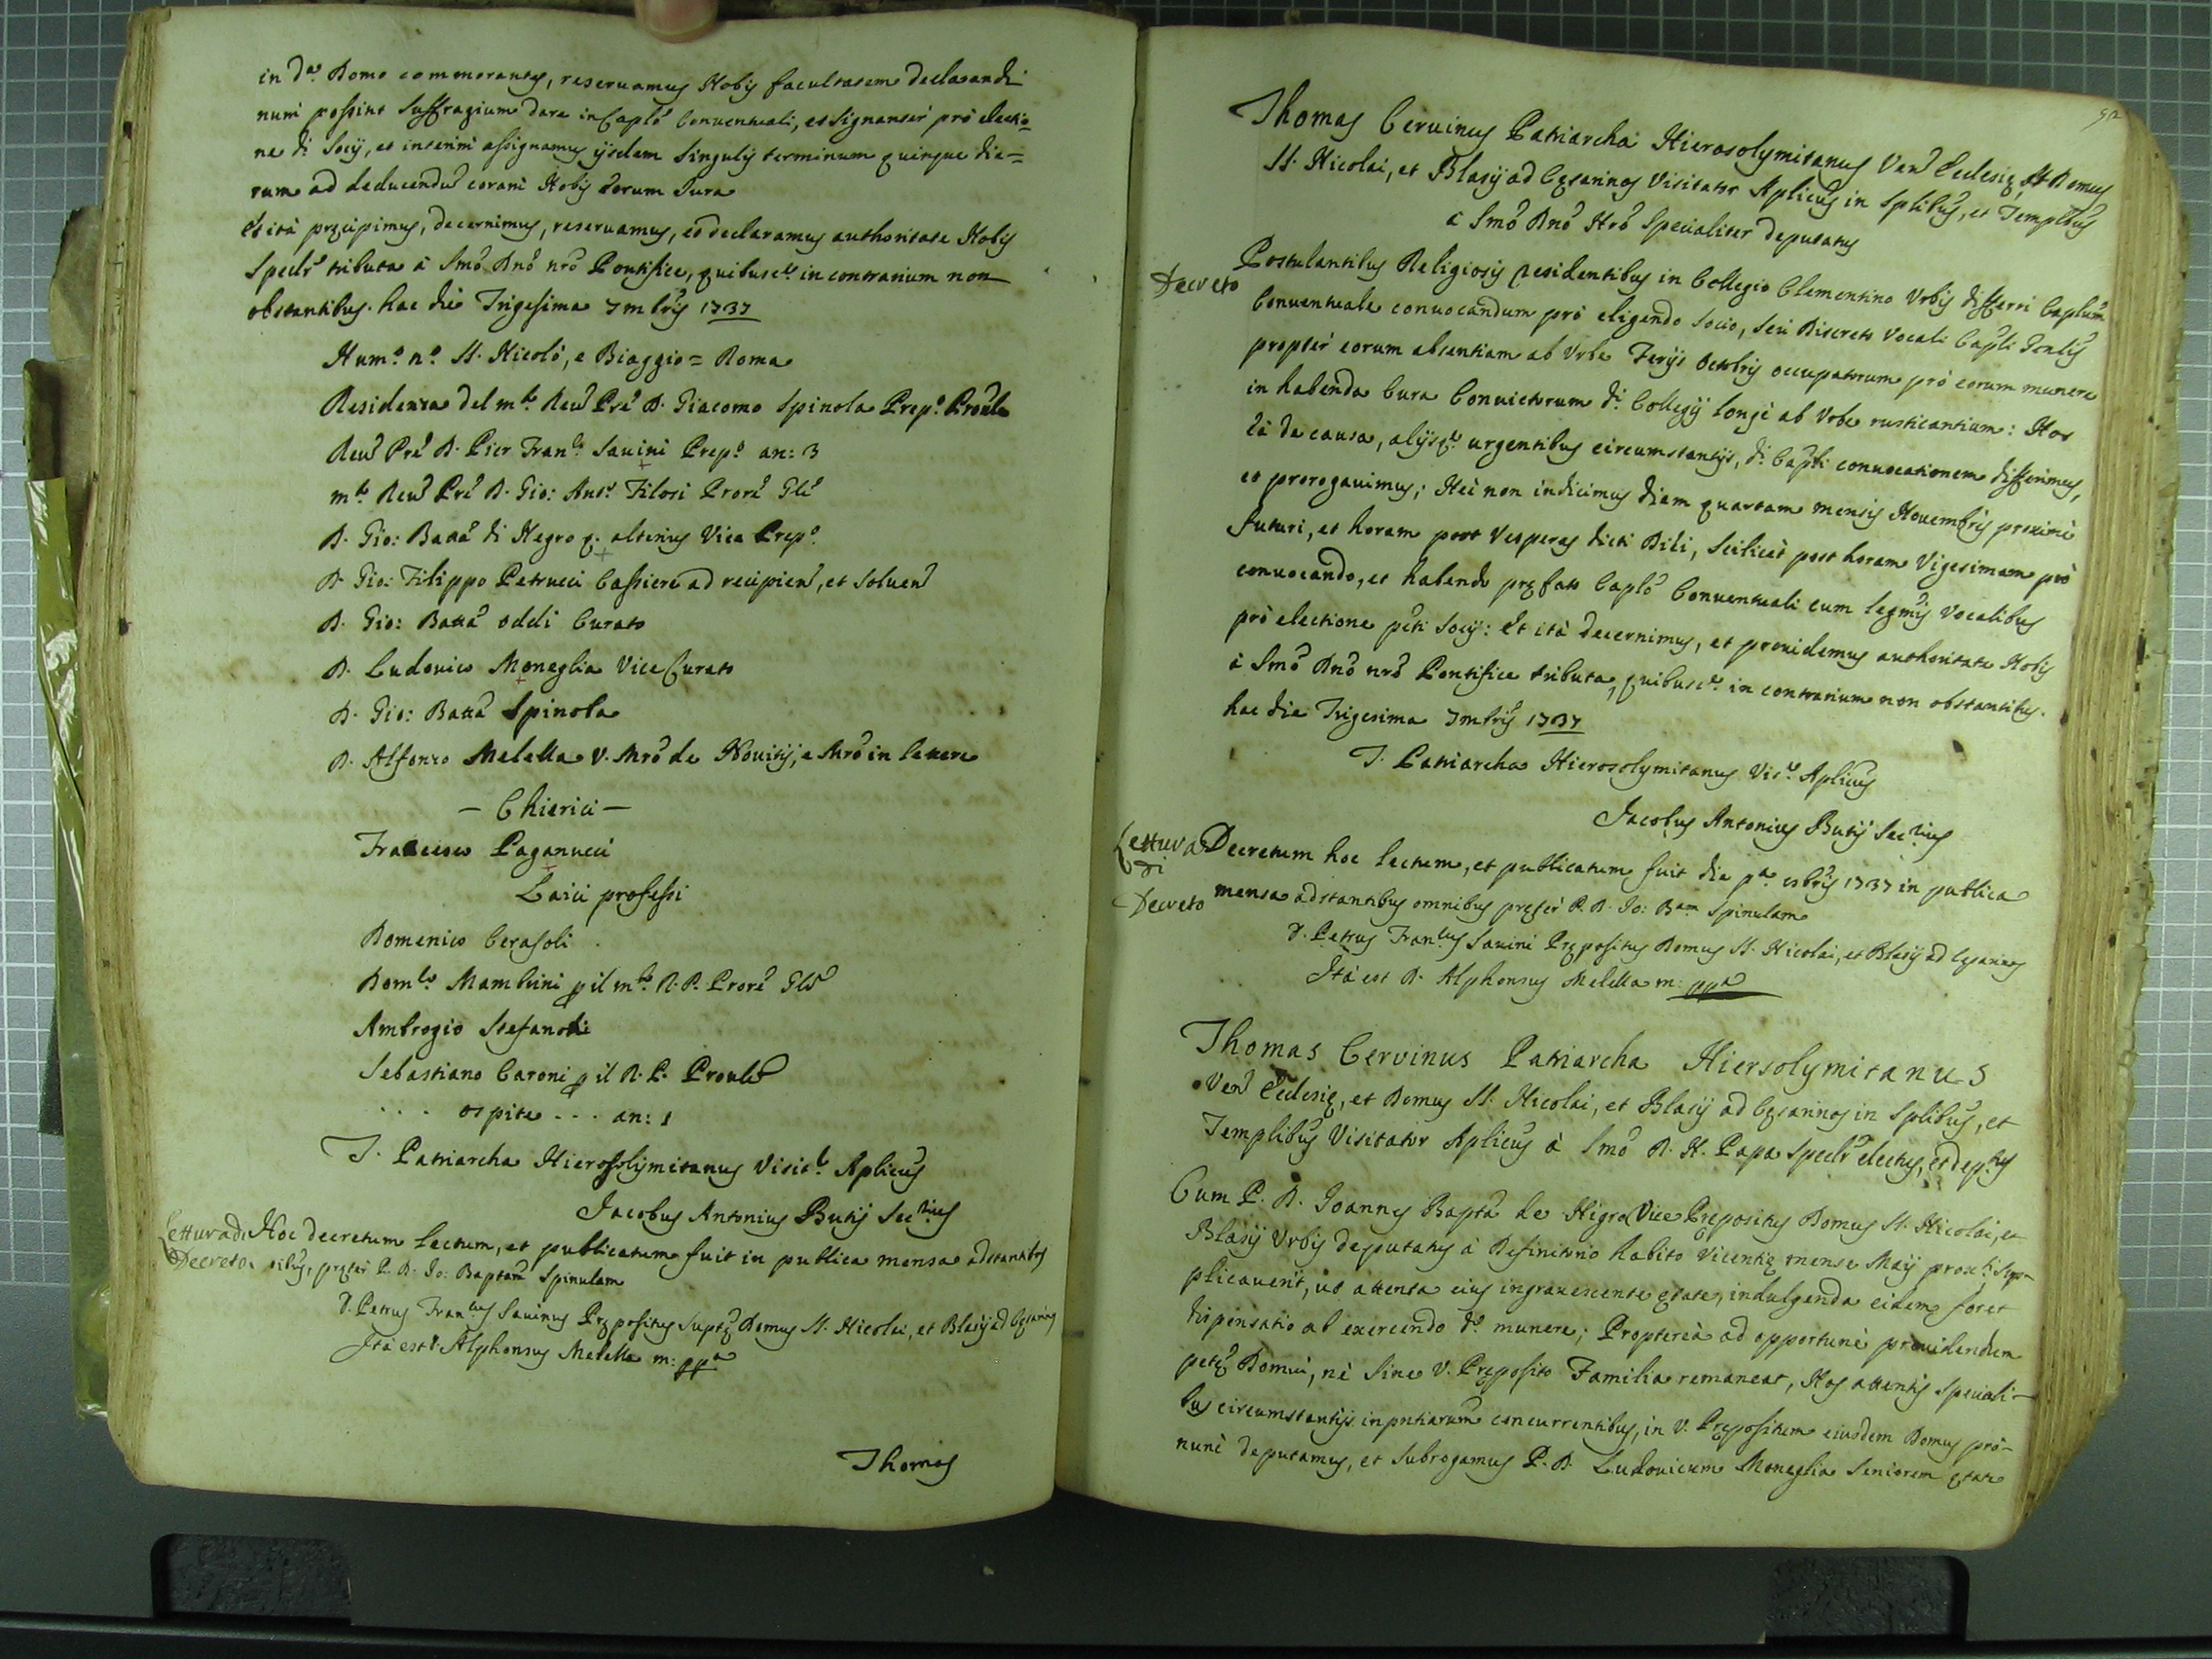 in d.ª Domo commorantes, reservamus Nobis facultatem declarandi
num possint suffragium dare in Caplo Conventuali, et signanter pro electio=
ne di Socij, et interim assignamus ijsdem singulis terminum quinque die=
rum ad deducendu coram Nobis eorum Jura
Et ità pręcipimus, decernimus, reservamus, et declaramus authoritate Nobis
Speclr tributa à Smo Dno nro Pontifice, quibusc.e in contrarium non
obstantibus. hac die Trigesima 7mbris 1737
Num.o n.o SS. Nicolò, e Biaggio = Roma
Residenza del m.to Reu Pre D. Giacomo Spinola Prep.o Proule
Reu Pre D. Pier Fran.co Sauini Prep.o an: 3
m.to Reu Pre D. Gio: Ant.o Filosi Prore Gle
D. Gio: Batta di Negro q. alterius Vice Prep.o
D. Gio: Filippo Petrucci Cassiere ad recipien, et soluen
D. Gio: Batta Oddi Curato
D. Ludovico Moneglia Vice Curato
D. Gio: Batta Spinola
D. Alfonzo Melella V. Mro de Novitij, e Mro in lettere
— Chierici —
Francesco Paganucci
Laici professi
Domenico Cerasoli
Dom.co Mambrini p il m.to R. P. Prore Gle
Ambrogio Stefanohi
Sebastiano Caroni p il R. P. Proule
. . . ospite . . . an: 1
T. Patriarcha Hierosolymitanus Visit.r Aplicus
Jacobus Antonius Butij Sec.rius
Lettura di Decreto
Hoc decretum lectum, et publicatum fuit in publica mensa adstantibus
oibus, pręter P. D. Jo: Baptam Spinulam
D. Petrus Fran.cus Savinus Prępositus suptę Domus SS. Nicolai, et Blasij ad Cęsarinos
Ità est D. Alphonsus Melella m: pp.a
Thomas
52
Thomas Cervinus Patriarcha Hierosolymitanus Ven Ecclesię, et Domus
SS. Nicolai, et Blasij ad Cęsarinos Visitator Aplicus in Splibus, et Templibus
à Smo Dno Nro Specialiter deputatus
Decreto
Postulantibus Religiosis residentibus in Collegio Clementino Urbis differri Caplum
Conventuale convocandum prò eligendo Socio, seù Discreto Vocali Capli Gnlis
propter eorum absentiam ab Urbe Ferijs Octobris occupatorum prò eorum munere
in habenda Cura Convictorum di Collegij longè ab Urbe rusticantium: Nos
eà de causa, alijsq.e urgentibus circumstantijs, di Capli convocationem differimus,
et prorogavimus; Nec non indicimus diem quartam mensis Novembris proximè
futuri, et horam post Vesperas dicti Diei, scilicèt post horam Vigesimam prò
convocando, et habendo pręfato Caplo Conventuali cum legmis Vocalibus
prò electione pcti Socij: Et ità decernimus, et providemus authoritate Nobis
à Smo Dno nro Pontifice tributa, quibusc.e in contrarium non obstantibus.
hac die Trigesima 7mbris 1737
T. Patriarcha Hierosolymitanus Vis.r Aplicus
Jacobus Antonius Butij Sec.rius
Lettura di Decreto
Decretum hoc lectum, et publicatum fuit die p.a 8bris 1737 in publica
mensa adstantibus omnibus pręter P. D. Jo: B.am Spinulam
D. Petrus Fran.cus Savini Prępositus Domus SS. Nicolai, et Blasij ad Cęsarinos
Ità est D. Alphonsus Melella m: pp.a
Thomas Cervinus Patriarcha Hiersolymitanus
Ven Ecclesię, et Domus SS. Nicolai, et Blasij ad Cęsarinos in Splibus, et
Templibus Visitator Aplicus à Smo D. N. Papa Speclr electus, et dep.tus
Cum P. D. Joannes Bapta de Nigro Vice Prępositus Domus SS. Nicolai, et
Blasij Urbis deputatus à Definitorio habito Vicentię mense Maij prox.i sup-
plicaverit, ut attenta eius ingravescente ętate, indulgenda eidem foret
dispensatio ab exercendo do munere; Proptereà ad opportunè providendum
petę Domui, nè sine V. Pręposito Familia remaneat, Nos attentis speciali-
bus circumstantijs inpntiarum concurrentibus, in V. Prępositum eiusdem Domus prò-
nunc deputamus, et subrogamus P. D. Ludovicum Moneglia Seniorem ętate